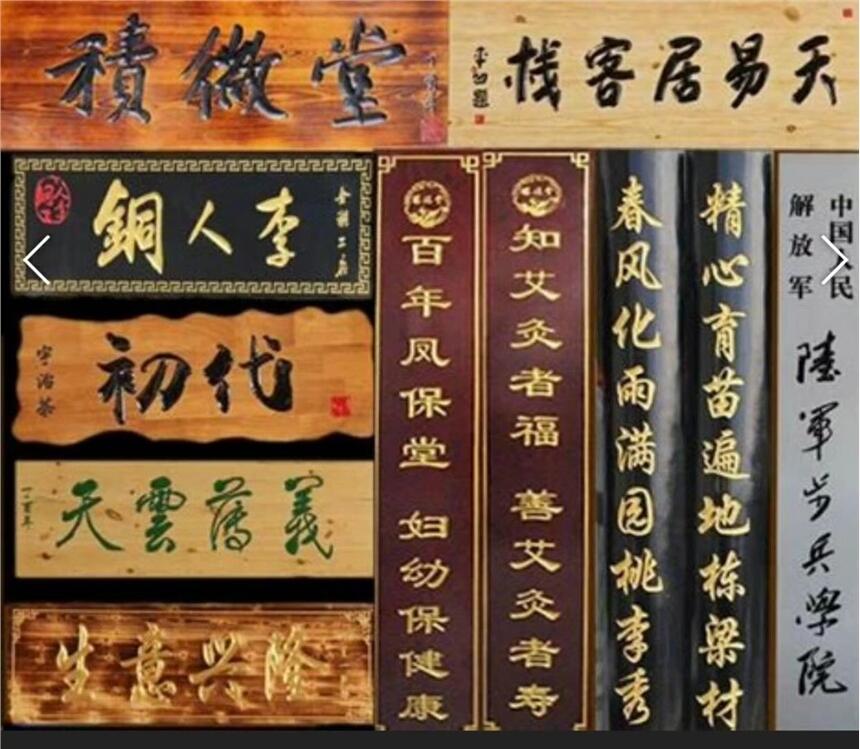 積微堂
天易居客栈
李人銅
金雕工房
初代
宇治茶
義薄雲天
丁酉年
生意兴隆
百年凤保堂 妇幼保健康
知艾灸者福 善艾灸者寿
春风化雨满园桃李秀
精心育苗遍地栋梁材
中国人民
解放军
陸軍步兵學院